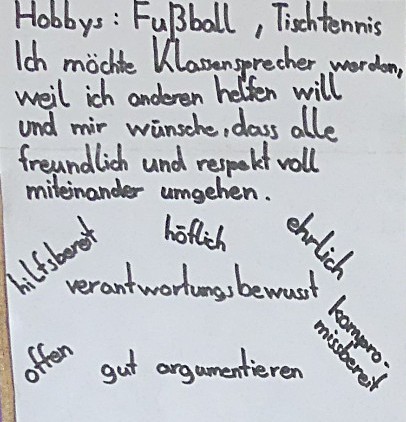 Hobbys: Fußball, Tischtennis
Ich möchte Klassensprecher werden,
weil ich anderen helfen will
und mir wünsche, dass alle
freundlich und respektvoll
miteinander umgehen.
hilfsbereit
höflich
ehrlich
verantwortungsbewusst
kompro-
missbereit
offen
gut argumentieren